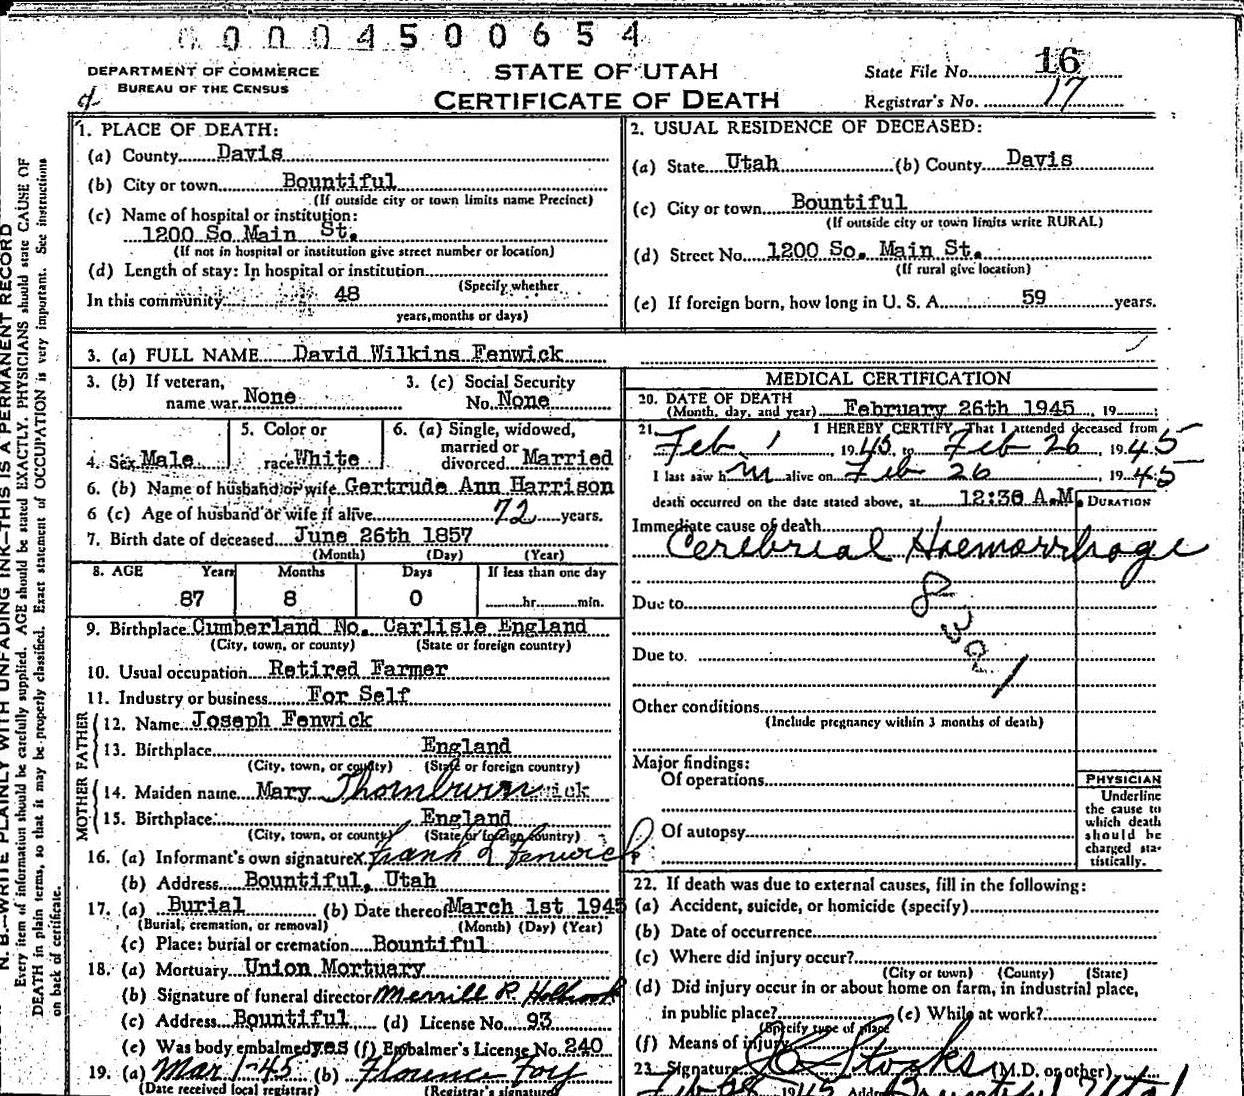 0 0 0 0 4 5 0 0 6 5 4
DEPARTMENT OF COMMERCE
BUREAU OF THE CENSUS
STATE OF UTAH
CERTIFICATE OF DEATH
State File No. 16
Registrar's No. 17
N. B.—WRITE PLAINLY WITH UNFADING INK—THIS IS A PERMANENT RECORD
Every item of information should be carefully supplied. AGE should be stated EXACTLY. PHYSICIANS should state CAUSE OF
DEATH in plain terms, so that it may be properly classified. Exact statement of OCCUPATION is very important. See instructions
on back of certificate.
1. PLACE OF DEATH:
(a) County Davis
(b) City or town Bountiful
(If outside city or town limits name Precinct)
(c) Name of hospital or institution:
1200 So Main St.
(If not in hospital or institution give street number or location)
(d) Length of stay: In hospital or institution
(Specify whether
In this community 48
years, months or days)
2. USUAL RESIDENCE OF DECEASED:
(a) State Utah (b) County Davis
(c) City or town Bountiful
(If outside city or town limits write RURAL)
(d) Street No. 1200 So. Main St.
(If rural give location)
(e) If foreign born, how long in U. S. A. 59 years.
3. (a) FULL NAME David Wilkins Fenwick
3. (b) If veteran, 3. (c) Social Security
name war None No. None
5. Color or 6. (a) Single, widowed,
married or
4. Sex Male race White divorced Married
6. (b) Name of husband or wife Gertrude Ann Harrison
6 (c) Age of husband or wife if alive 72 years.
7. Birth date of deceased June 26th 1857
(Month) (Day) (Year)
8. AGE Years Months Days If less than one day
87 8 0 hr. min.
9. Birthplace Cumberland No. Carlisle England
(City, town, or county) (State or foreign country)
10. Usual occupation Retired Farmer
11. Industry or business For Self
FATHER
12. Name Joseph Fenwick
13. Birthplace England
(City, town, or county) (State or foreign country)
MOTHER
14. Maiden name Mary Thornburn
15. Birthplace England
(City, town, or county) (State or foreign country)
16. (a) Informant's own signature x Frank L Fenwick
(b) Address Bountiful, Utah
17. (a) Burial (b) Date thereof March 1st 1945
(Burial, cremation, or removal) (Month) (Day) (Year)
(c) Place: burial or cremation Bountiful
18. (a) Mortuary Union Mortuary
(b) Signature of funeral director Merrill R. Holbrook
(c) Address Bountiful (d) License No. 93
(e) Was body embalmed yes (f) Embalmer's License No. 240
19. (a) Mar 1-45 (b) Florence Foy
(Date received local registrar) (Registrar's signature)
MEDICAL CERTIFICATION
20. DATE OF DEATH
(Month, day, and year) February 26th 1945, 19 ;
21. I HEREBY CERTIFY, That I attended deceased from
Feb 1, 1945, to Feb 26, 1945
I last saw h im alive on Feb 26, 1945
death occurred on the date stated above, at 12:30 A.M. DURATION
Immediate cause of death
Cerebrial Haemorrhage
Due to
Due to
Other conditions
(Include pregnancy within 3 months of death)
Major findings:
Of operations
Of autopsy
PHYSICIAN
Underline
the cause to
which death
should be
charged sta-
tistically.
22. If death was due to external causes, fill in the following:
(a) Accident, suicide, or homicide (specify)
(b) Date of occurrence
(c) Where did injury occur?
(City or town) (County) (State)
(d) Did injury occur in or about home on farm, in industrial place,
in public place? (e) While at work?
(Specify type of place)
(f) Means of injury
23. Signature Stocks (M.D. or other)
1945 Address Bountiful Utah